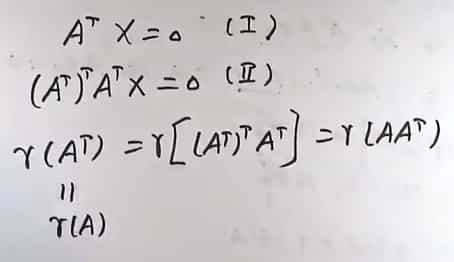 Aᵀ X = 0 (I)
(Aᵀ)ᵀ Aᵀ X = 0 (II)
r(Aᵀ) = r[(Aᵀ)ᵀ Aᵀ] = r(AAᵀ)
||
r(A)